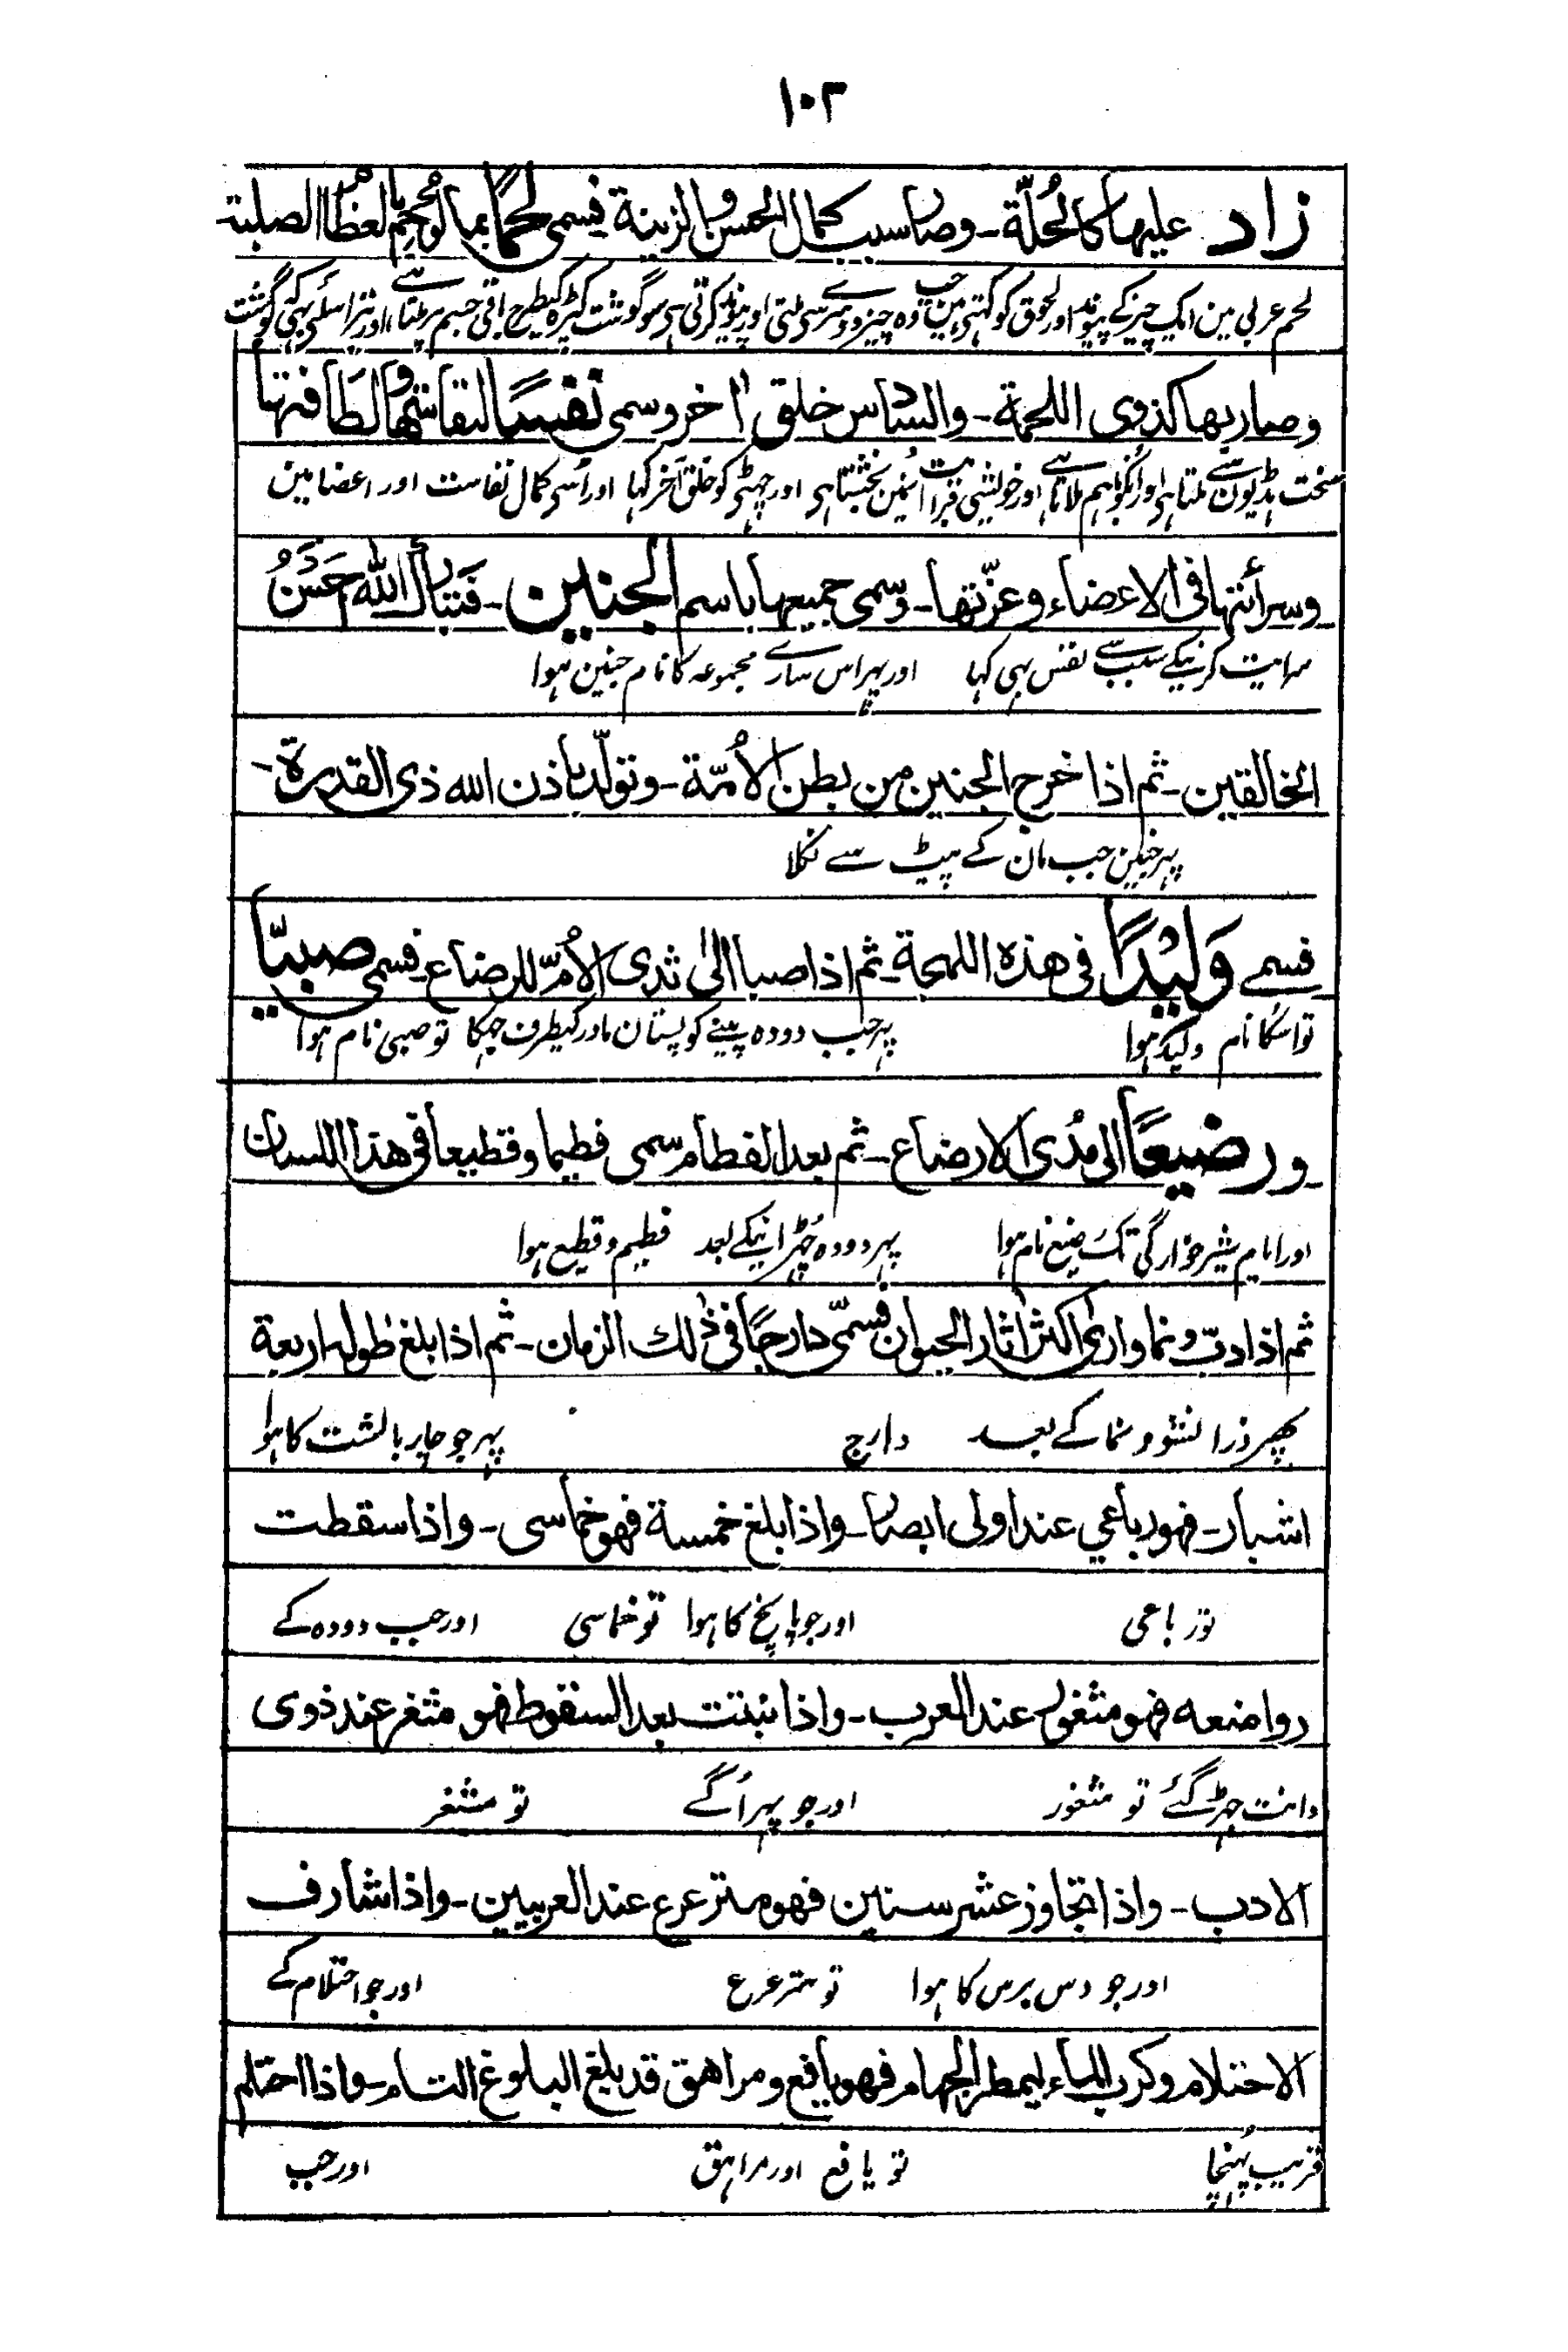 ۱۰۳
زاد عليها كالحُلّة ـ وصار سبب كمال الحسن والزينة فيسمى لحمًا بما لُوحِمَ بالعظام الصلبة
لحم عربی مین ایک چیز کے پیوند اور لحوق کو کہتے ہین جب وہ چیز دوسرے سے ملتی اور پیوند کرتی ہی سو گوشت کپڑہ کیطرح باقی جسم پر ملتا ہے اور نیز اسلئے بہی کہ گوشت
وصار بها كذوى اللحمة ـ والسادس خلق اٰخر وسمى نفسًا لنفاستها ولطافتها
سخت ہڈیون سے ملتا ہی اور انکو باہم ملاتا ہے اور خویشی قرابت اُنمین بخشتا ہی اور چہٹی کو خلق آخر کہا اور اُسی کمال نفاست اور اعضا مین
وسرأيتها فى الاعضاء وعزّتها ـ وسمى جميعها باسم الجنين ـ فتبارك الله احسن
سرایت کرنیکے سبب سے نفس بہی کہا اور پہر اس سارے مجموعہ کا نام جنین ہوا
الخالقين ـ ثم اذا خرج الجنين من بطن الاُمّة ـ وتولّد باذن الله ذى القدرة ـ
پہر جنین جب مان کے پیٹ سے نکلا
فسمے وَلِيْدًا فى هذه اللهجة ـ ثم اذا صبا الىٰ ثدى الاُمّ للرضاع ـ فسمى صبيًّا
تو اسکا نام ولید ہوا پہر جب دودہ پینے کو پستان مادر کیطرف جہکا تو صبی نام ہوا
ورضيعًا الى مُدى الارضاع ـ ثم بعد الفطام سمى فطيما وقطيعا فى هذا اللسان
اور ایام شیر خوارگی تک رضیع نام ہوا پہر دودہ چُہڑانیکے بعد فطیم و قطیع ہوا
ثم اذا دبّ ونما وارىٰ اكثر اٰثار الحيوان فسمّى دارجًا فى ذٰلك الزمان ـ ثم اذا بلغ طوله اربعة
پھر ذرا نشؤ و نما کے بعد دارج پہر جو چار بالشت کا ہوا
اشبار ـ فهو رباعي عند اولى ابصار ـ واذا بلغ خمسة فهو خماسى ـ واذا سقطت
تو رباعی اور جو پانچ کا ہوا تو خماسی اور جب دودہ کے
رواضعه فهو مثغور عند العرب ـ واذا نبتت بعد السقوط فهو مثغر عند ذوى
دانت جہڑ گئے تو مثغور اور جو پہر اُگے تو مثغر
الادب ـ واذا تجاوز عشر سنين فهو مترعرع عند العربيين ـ واذا شارف
اور جو دس برس کا ہوا تو مترعرع اور جو احتلام کے
الاحتلام وكرب الماء ليمطر الجهام فهو يافع ومراهق قد بلغ البلوغ التام ـ واذا احتلم
قریب پُہنچا تو یافع اور مراہق اور جب